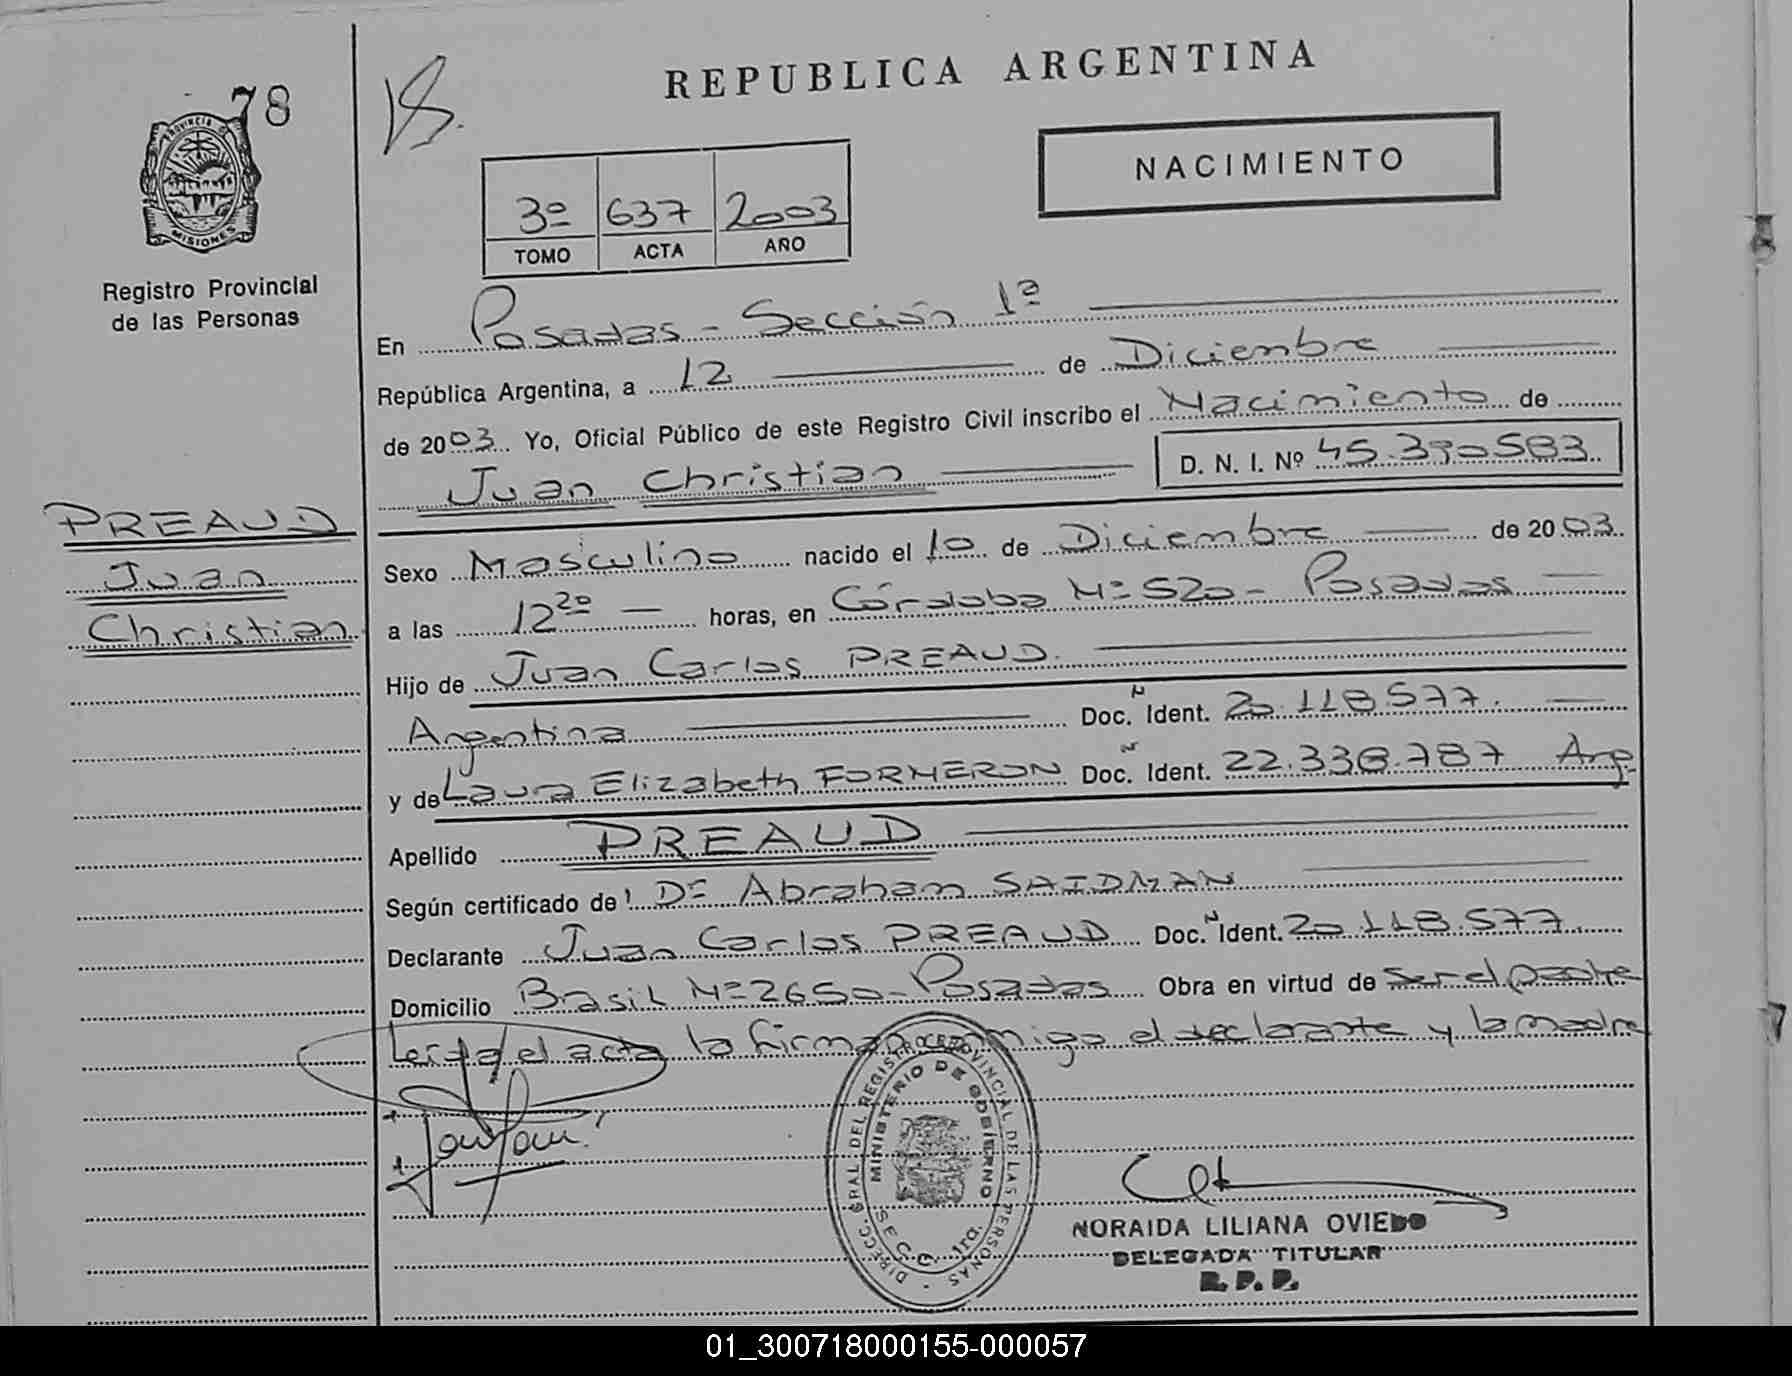 78
REPUBLICA ARGENTINA
NACIMIENTO
3º 637 2003
TOMO ACTA AÑO
PROVINCIA DE
MISIONES
Registro Provincial
de las Personas
En Posadas - Sección 1ª
República Argentina, a 12 de Diciembre
de 2003. Yo, Oficial Público de este Registro Civil inscribo el Nacimiento de
Juan Christian D. N. I. Nº 45.390583
PREAUD
Juan
Christian
Sexo Masculino nacido el 10 de Diciembre de 2003
a las 12 20 horas, en Córdoba Nº 520 - Posadas
Hijo de Juan Carlos PREAUD.
Argentina Doc. N Ident. 20.118.577.
y de Laura Elizabeth FORMERON Doc. N Ident. 22.338.787 Arg
Apellido PREAUD
Según certificado de Dr Abraham SAIDMAN
Declarante Juan Carlos PREAUD Doc. N Ident. 20.118.577
Domicilio Brasil Nº 2650 - Posadas Obra en virtud de ser el padre
Leida el acta la firman conmigo el declarante y la madre
DIRECC. GRAL DEL REGISTRO PROVINCIAL DE LAS PERSONAS
MINISTERIO DE GOBIERNO
SECC. 1ra.
NORAIDA LILIANA OVIEDO
DELEGADA TITULAR
R. P. P.
01_300718000155-000057